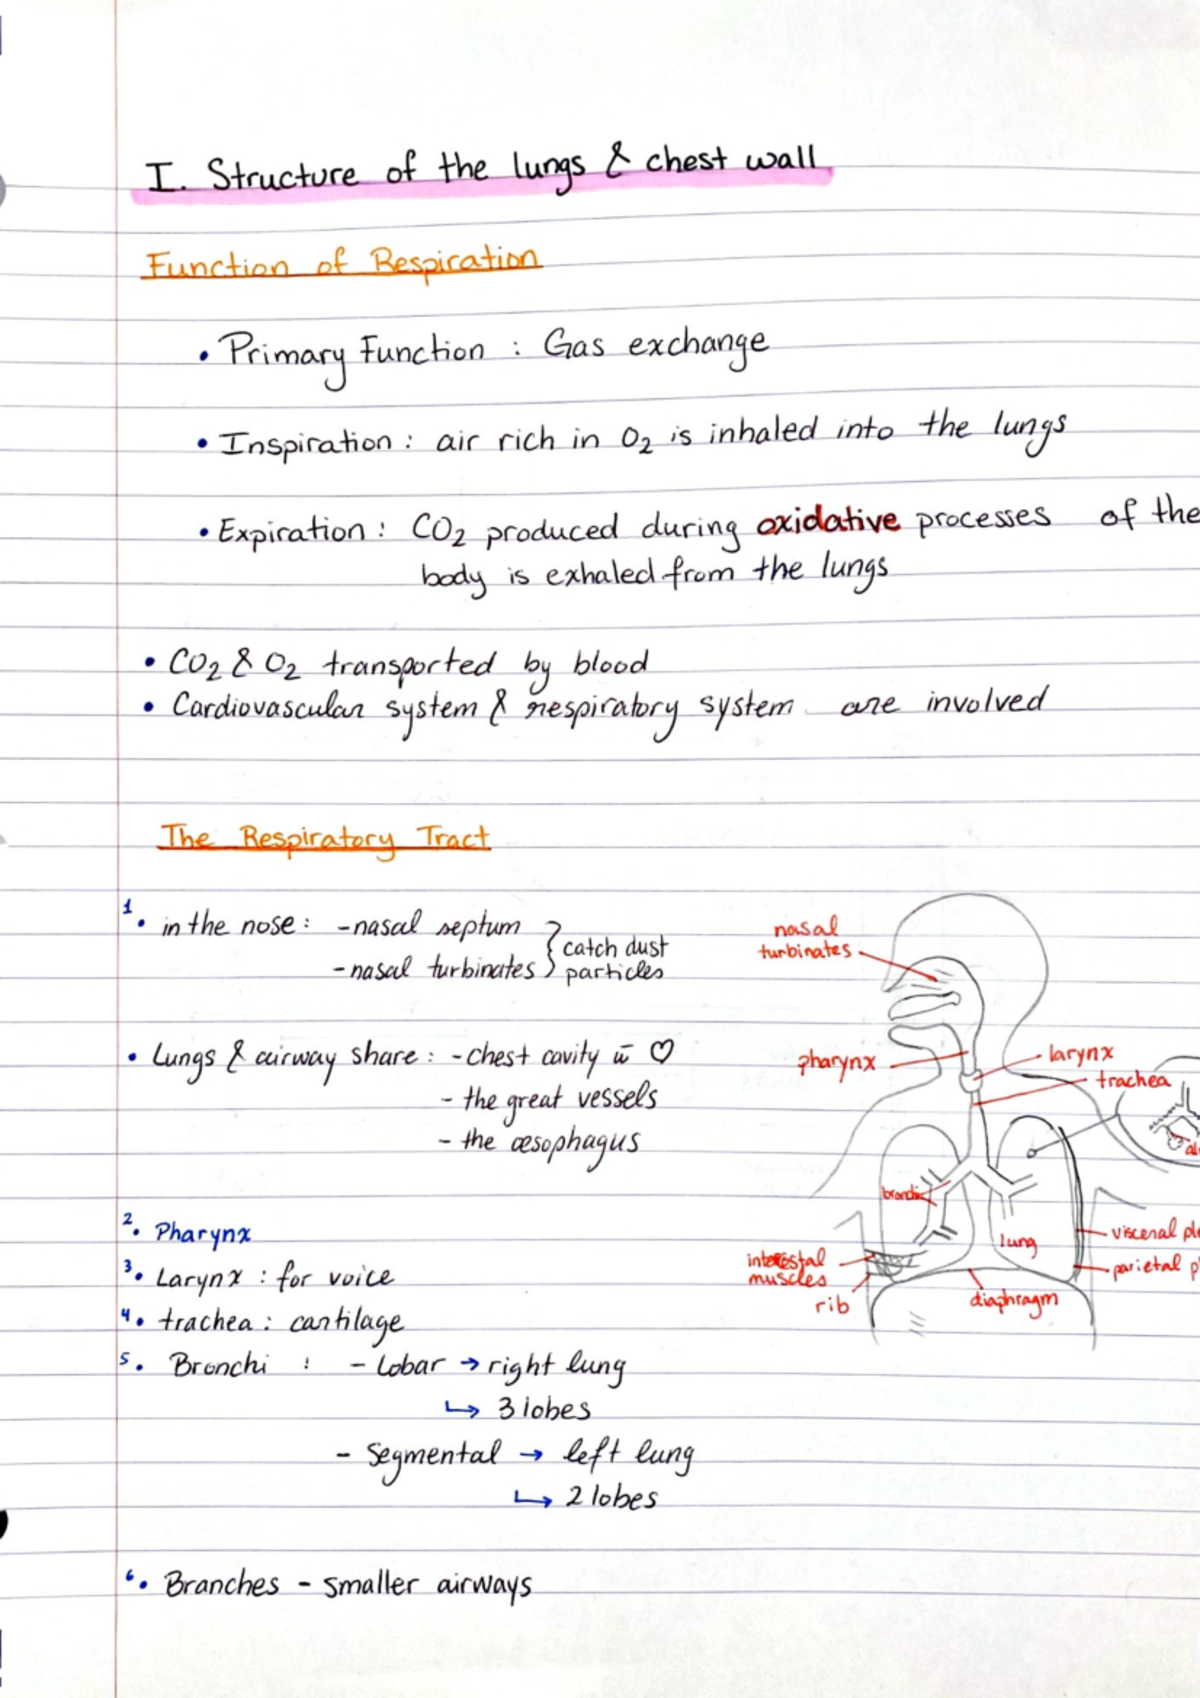 I. Structure of the lungs & chest wall
Function of Respiration
• Primary Function : Gas exchange
• Inspiration : air rich in O2 is inhaled into the lungs
• Expiration : CO2 produced during oxidative processes of the
body is exhaled from the lungs
• CO2 & O2 transported by blood
• Cardiovascular system & respiratory system are involved
The Respiratory Tract
1. • in the nose : - nasal septum
- nasal turbinates } catch dust
particles
• Lungs & airway share : - chest cavity w̄ ♡
- the great vessels
- the œsophagus
2. • Pharynx
3. • Larynx : for voice
4. • trachea : cartilage
5. • Bronchi : - Lobar → right lung
↳ 3 lobes
- Segmental → left lung
↳ 2 lobes
6. • Branches - smaller airways
nasal
turbinates
pharynx
larynx
trachea
bronchi
lung
visceral ple
parietal p
intercostal
muscles
rib
diaphragm